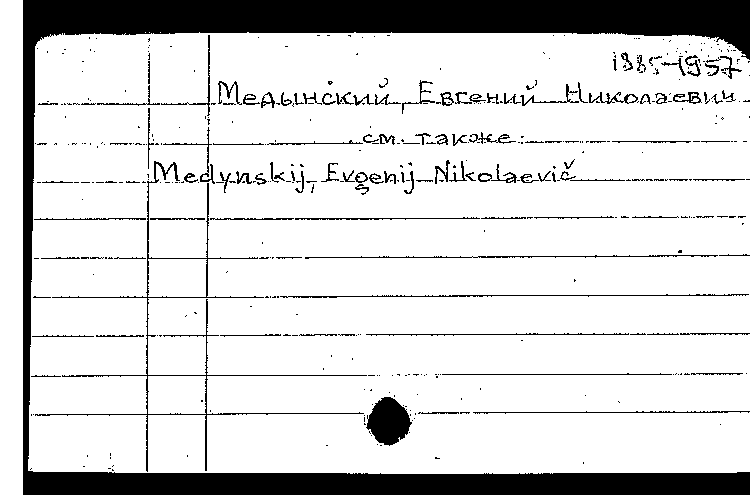 1885-1957
Медынский, Евгений Николаевич
см. также:
Medynskij, Evgenij Nikolaevič